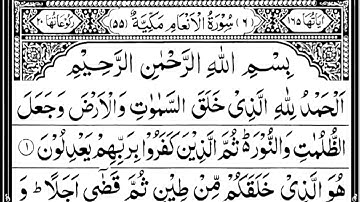 اٰيَاتُهَا ١٦٥ (٦) سُوۡرَةُ الۡاَنۡعَامِ مَكِّيَّةٌ (٥٥) رُكُوۡعَاتُهَا ٢٠
بِسۡمِ اللهِ الرَّحۡمٰنِ الرَّحِيۡمِ
اَلۡحَمۡدُ لِلّٰهِ الَّذِىۡ خَلَقَ السَّمٰوٰتِ وَالۡاَرۡضَ وَجَعَلَ
الظُّلُمٰتِ وَالنُّوۡرَ ؕ ثُمَّ الَّذِيۡنَ كَفَرُوۡا بِرَبِّهِمۡ يَعۡدِلُوۡنَ ①
هُوَ الَّذِىۡ خَلَقَكُمۡ مِّنۡ طِيۡنٍ ثُمَّ قَضٰٓى اَجَلًا ؕ وَ